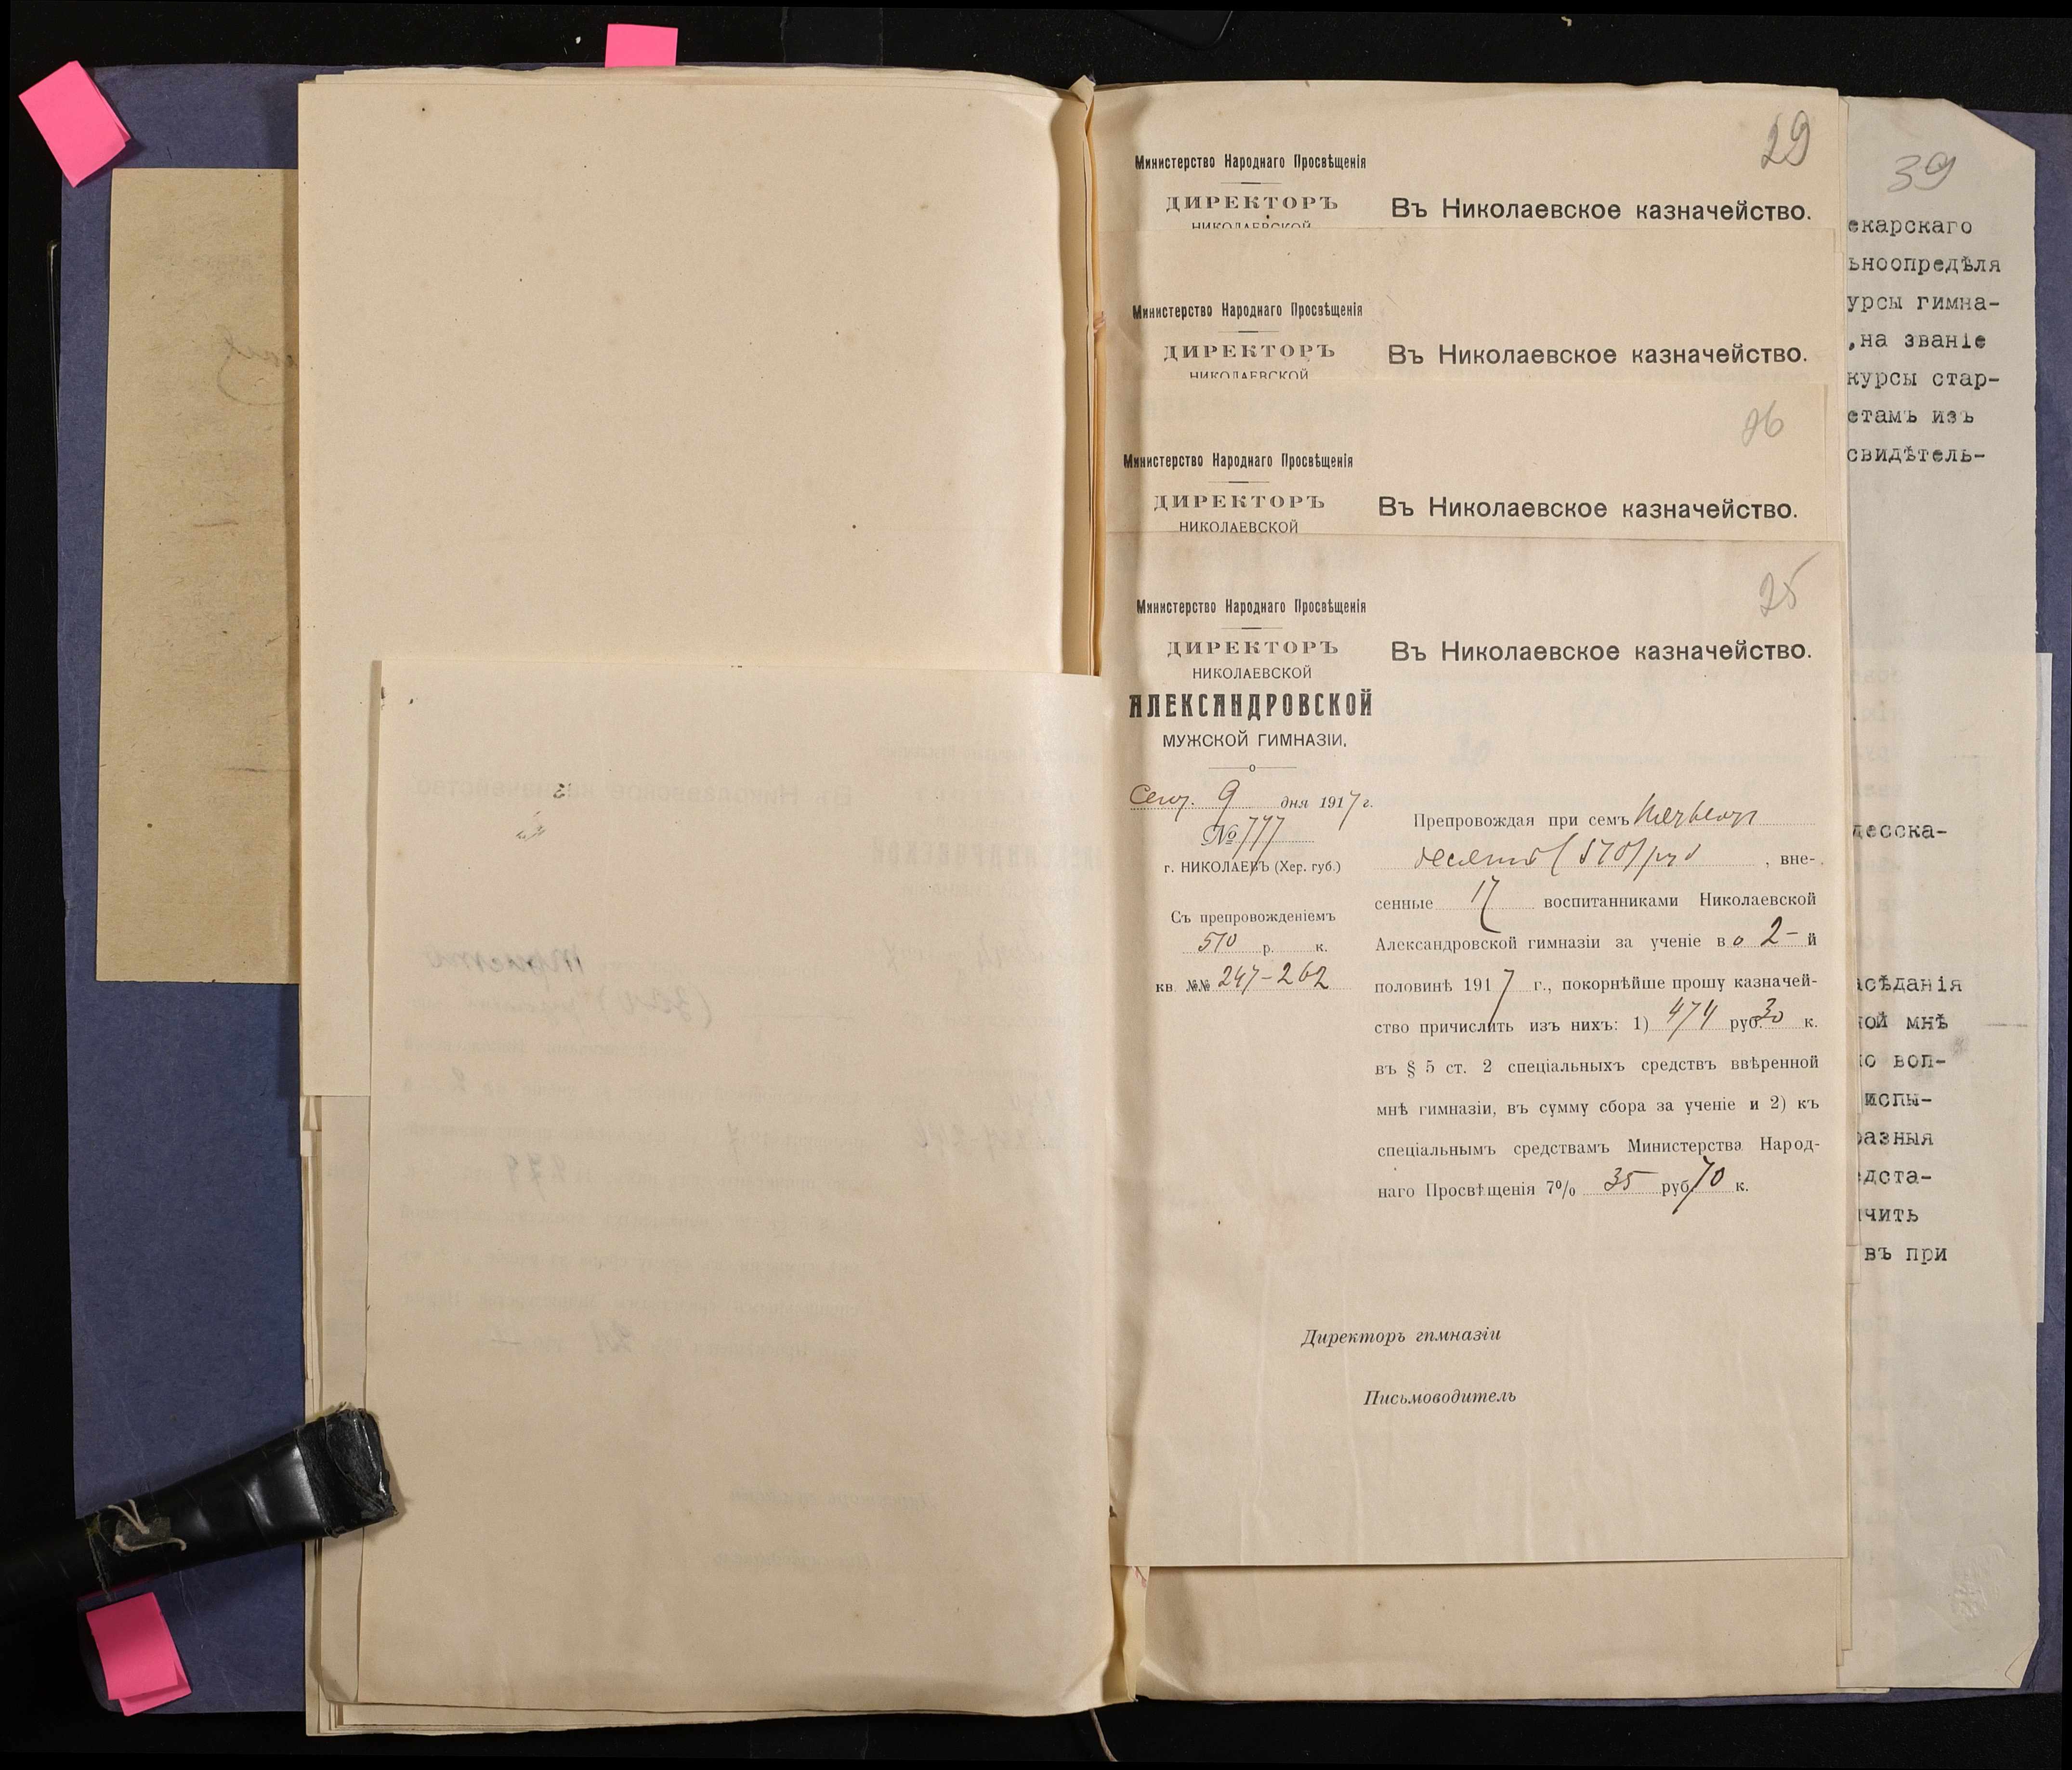 29
Министерство Народнаго Просвѣщенія
ДИРЕКТОРЪ
НИКОЛАЕВСКОЙ
Въ Николаевское казначейство.
Министерство Народнаго Просвѣщенія
ДИРЕКТОРЪ
НИКОЛАЕВСКОЙ
Въ Николаевское казначейство.
26
Министерство Народнаго Просвѣщенія
ДИРЕКТОРЪ
НИКОЛАЕВСКОЙ
Въ Николаевское казначейство.
25
Министерство Народнаго Просвѣщенія
ДИРЕКТОРЪ
НИКОЛАЕВСКОЙ
АЛЕКСАНДРОВСКОЙ
МУЖСКОЙ ГИМНАЗІИ.
Въ Николаевское казначейство.
Сент. 9 дня 1917 г.
№ 777
г. НИКОЛАЕВЪ (Хер. губ.)
Съ препровожденіемъ
510 р. к.
кв. №№ 247-262
Препровождая при семъ
десять (510) руб , вне-
сенные 17 воспитанниками Николаевской
Александровской гимназіи за ученіе во 2-й
половинѣ 1917 г., покорнѣйше прошу казначей-
ство причислить изъ нихъ: 1) 474 руб. 30 к.
въ § 5 ст. 2 спеціальныхъ средствъ ввѣренной
мнѣ гимназіи, въ сумму сбора за ученіе и 2) къ
спеціальнымъ средствамъ Министерства Народ-
наго Просвѣщенія 7% 35 руб 70 к.
Директоръ гимназіи
Письмоводитель
39
екарскаго
ьноопредѣля
урсы гимна-
,на званіе
курсы стар-
етамъ изъ
свидѣтель-
десска-
асѣданія
ой мнѣ
о воп-
испы-
разныя
дста-
чить
въ при